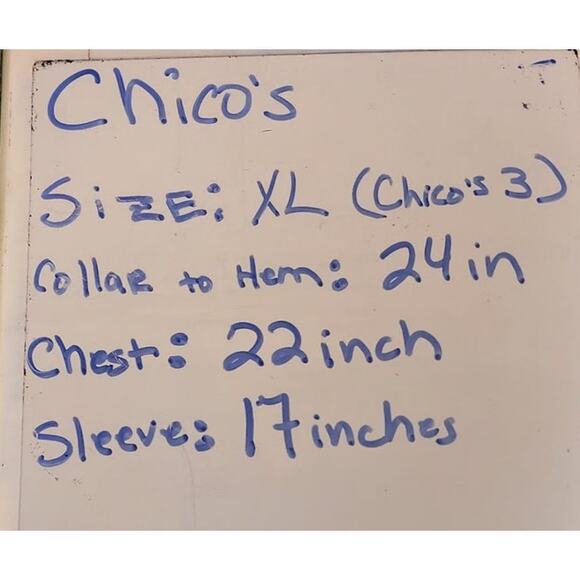 Chico's
SiZE: XL (Chico's 3)
Collar to Hem: 24 in
Chest: 22 inch
Sleeve: 17 inches